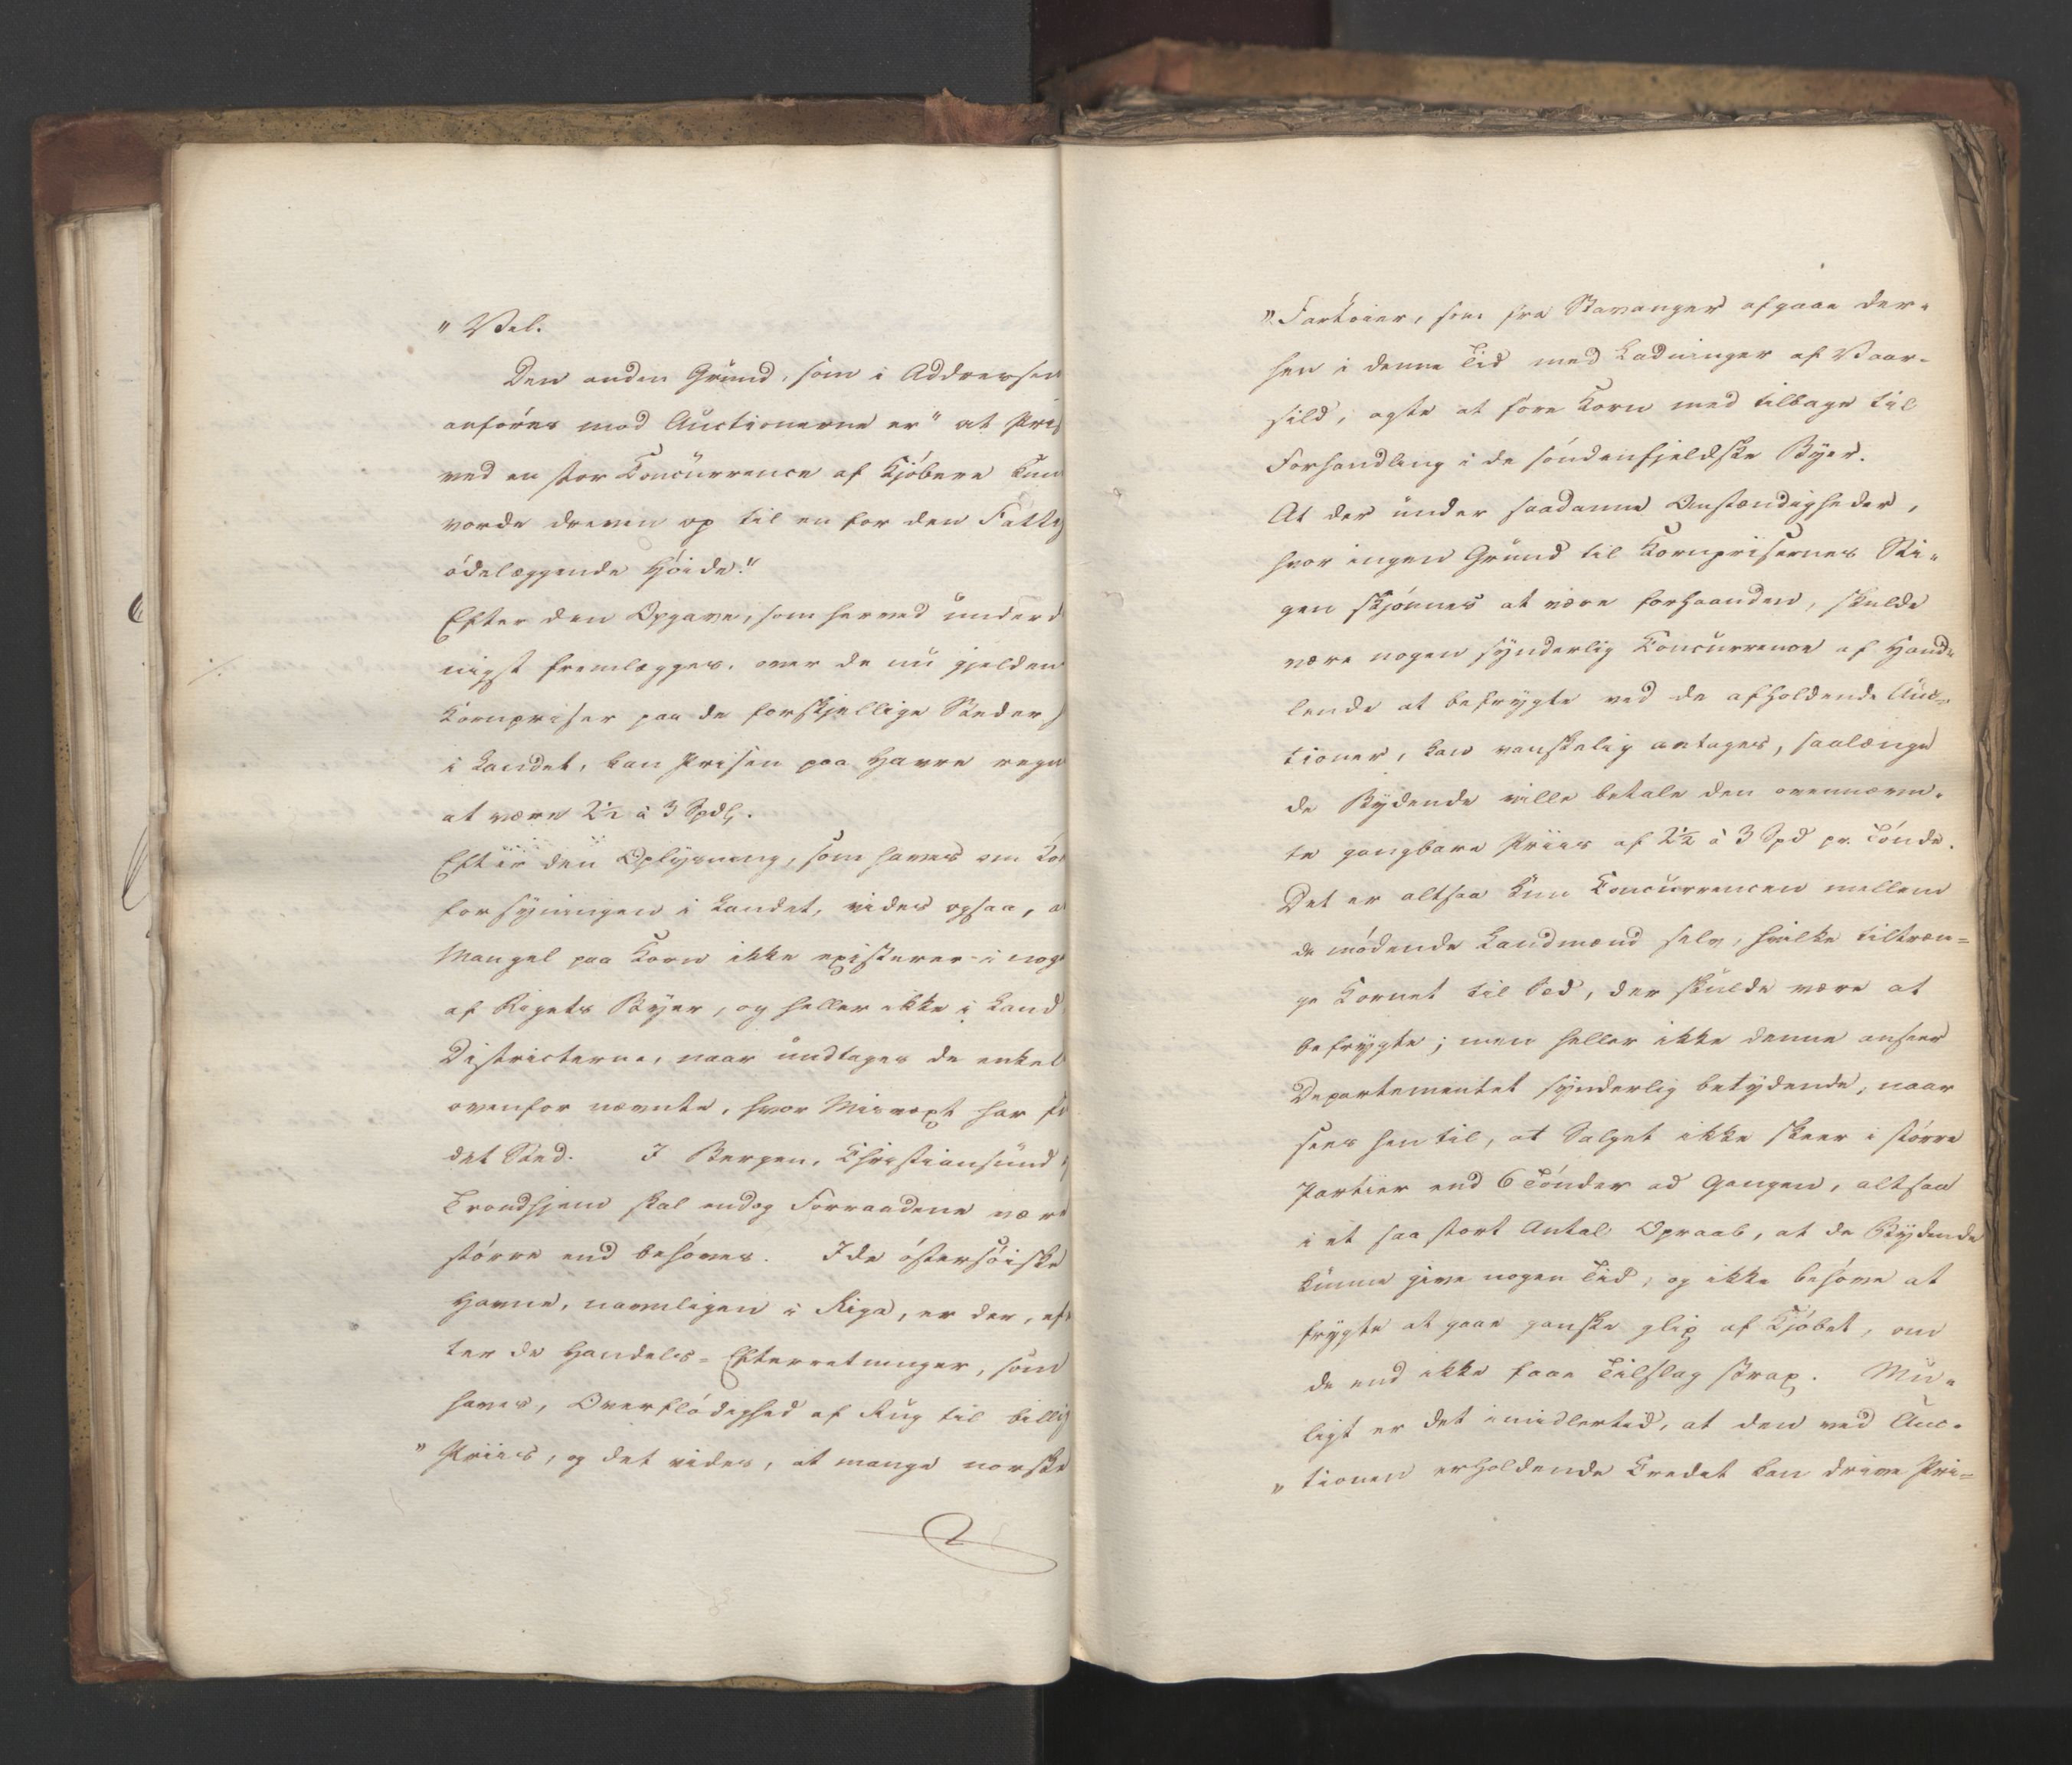 " Vel.
Den anden Grund, som i Addressen
anføres mod Auctionerne er " at Pris
ved en stor Concurrence af Kjøbere kun
vorde dreven op til en for den Fattig
ødelæggende Høide."
Efter den Opgave, som herved underd
nigst fremlægges, over de nu gjelden
Kornpriser paa de forskjellige Steder
i Landet, kan Prisen paa Havre regn
at være 2½ à 3 Spdl.
Efter den Oplysning, som haves om Ko
forsyningen i Landet, vides ogsaa, a
Mangel paa Korn ikke existerer i nog
af Rigets Byer, og heller ikke i Land
Districterne, naar undtages de enkel
ovenfor nævnte, hvor Misvæxt har fu
det Sted. I Bergen, Christiansund
Trondhjem skal endog Forraadene være
større end behøves. I de østersøiske
Havne, navnligen i Riga, er der, ef
ter de Handels-Efterretninger, som
haves, Overflødighed af Rug til billig
" Priis, og det vides, at mange norske
" Fartøier, som fra Stavanger afgaae der-
hen i denne Tid med Ladninger af Vaar-
sild, agte at føre Korn med tilbage til
Forhandling i de søndenfjeldske Byer.
At der under saadanne Omstændigheder,
hvor ingen Grund til Kornprisernes Sti-
gen skjønnes at være forhaanden, skulde
være nogen synderlig Concurrence af Hand-
lende at befrygte ved de afholdende Auc-
tioner, kan vanskelig antages, saalænge
de Bydende ville betale den ovennævn-
te gangbare Priis af 2½ à 3 Spd pr. Tønde.
Det er altsaa kun Concurrencen mellem
de mødende Landmænd selv, hvilke tiltræn-
ge Kornet til Sæd, der skulde være at
befrygte; men heller ikke denne anseer
Departementet synderlig betydende, naar
sees hen til, at Salget ikke skeer i større
Partier end 6 Tønder ad Gangen, altsaa
i et saa stort Antal Opraab, at de Bydende
kunne give nogen Tid, og ikke behøve at
frygte at gaae ganske glip af Kjøbet, om
de end ikke faae Tilslag strax. Mu-
ligt er det imidlertid, at den ved Auc-
" tionen erholdende Credit kan drive Pri-